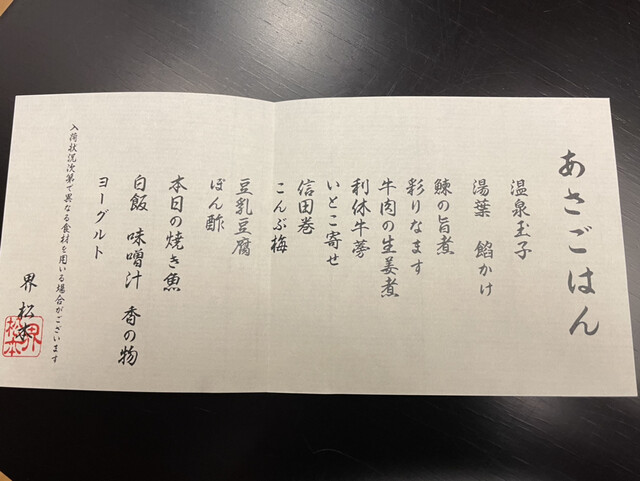 あさごはん
温泉玉子
湯葉 餡かけ
鰊の旨煮
彩りなます
牛肉の生姜煮
利休牛蒡
いとこ寄せ
信田巻
こんぶ梅
豆乳豆腐
ぽん酢
本日の焼き魚
白飯 味噌汁 香の物
ヨーグルト
入荷状況次第で異なる食材を用いる場合がございます
界 松本
界松本